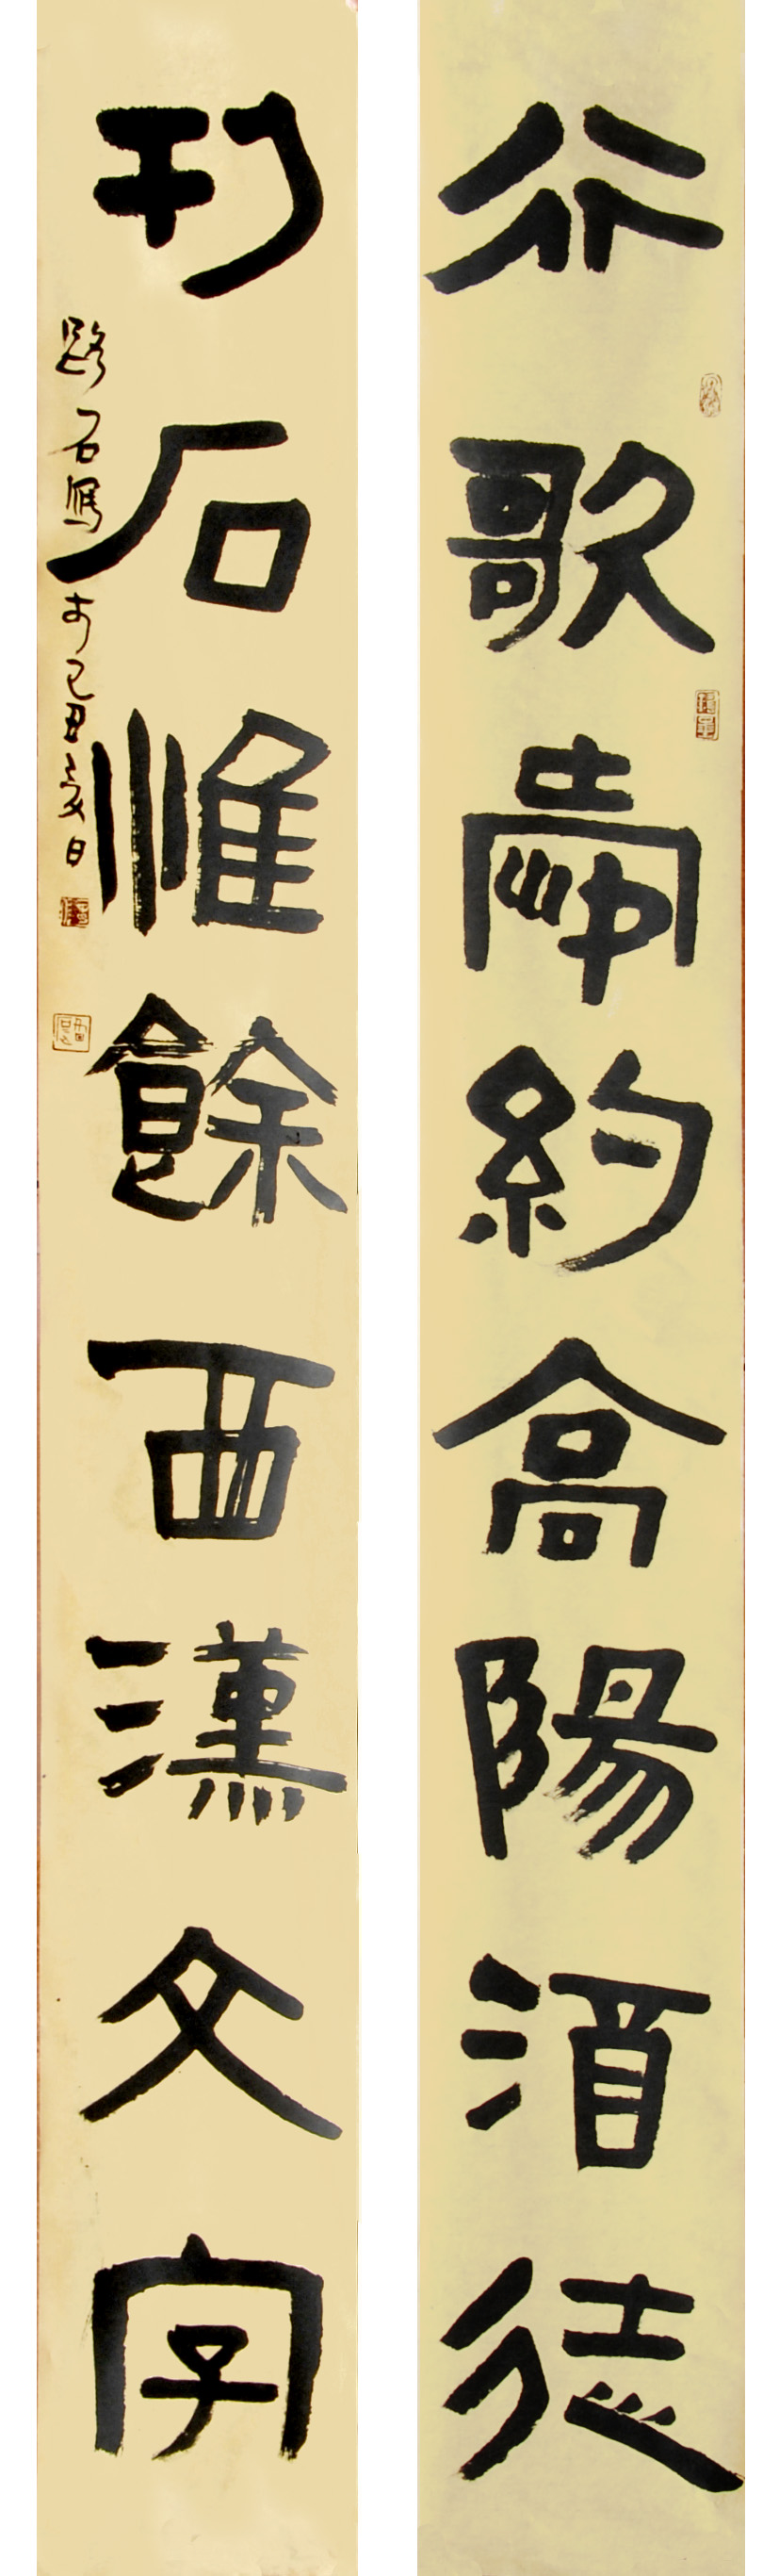 行歌約高陽酒徒
刊石惟餘西漢文字
路石
於己丑夏日